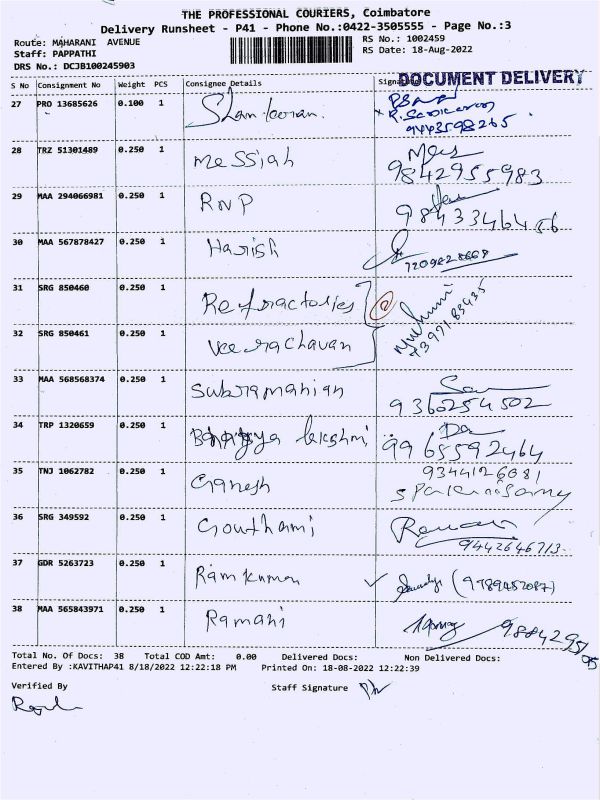 THE PROFESSIONAL COURIERS, Coimbatore
Delivery Runsheet - P41 - Phone No.:0422-3505555 - Page No.:3
Route: MAHARANI AVENUE
RS No.: 1002459
Staff: PAPPATHI
RS Date: 18-Aug-2022
DRS No.: DCJB100245903
DOCUMENT DELIVERY
S No Consignment No Weight PCS Consignee Details
27 PRO 13685626 0.100 1
9443598265
28 TRZ 51301489 0.250 1 Messiah
9842955983
29 MAA 294066981 0.250 1 RNP
9843346456
30 MAA 567878427 0.250 1 Harish
31 SRG 850460 0.250 1 Refractories
32 SRG 850461 0.250 1 Veerachavan
33 MAA 568568374 0.250 1 Subramanian
9360254502
34 TRP 1320659 0.250 1 lakshmi
9965592464
35 TNJ 1062782 0.250 1 Ganesh
9344126081
36 SRG 349592 0.250 1 Gouthami
9442646713
37 GDR 5263723 0.250 1 Ramkumar
38 MAA 565843971 0.250 1 Ramani
Total No. Of Docs: 38 Total COD Amt: 0.00 Delivered Docs: Non Delivered Docs:
Entered By :KAVITHAP41 8/18/2022 12:22:18 PM Printed On: 18-08-2022 12:22:39
Verified By
Staff Signature